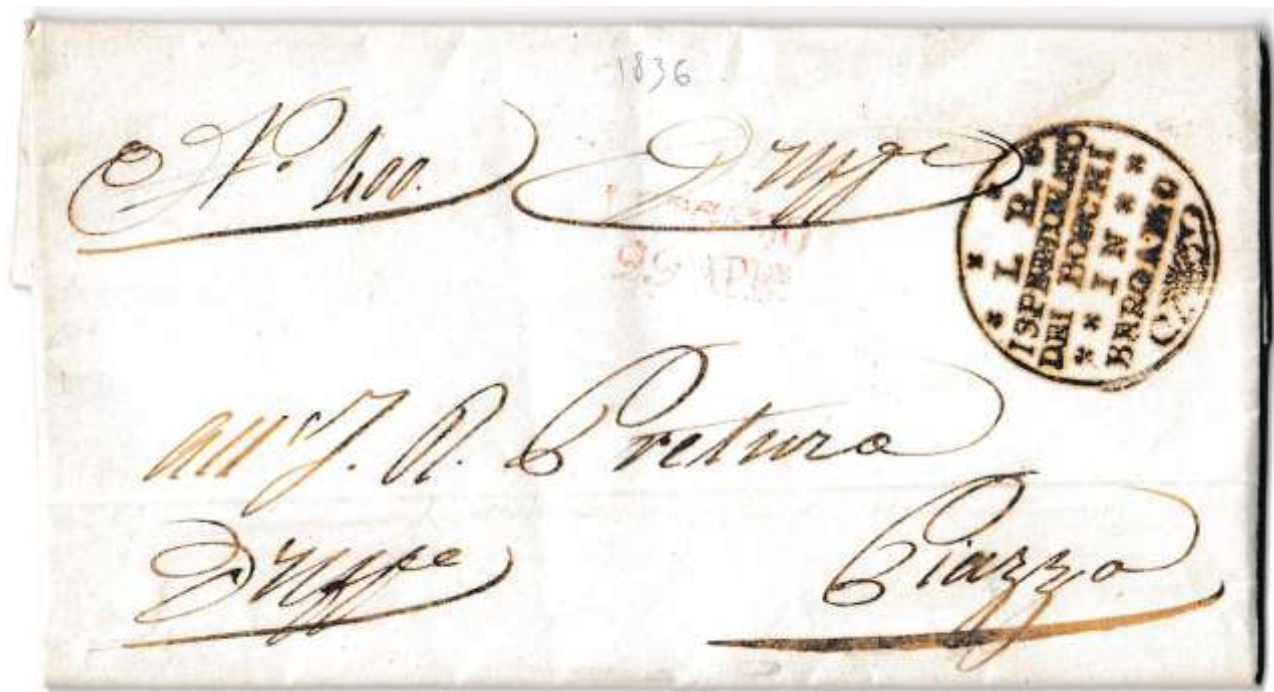 1836
N.º 400. D'Uffº
29 APR.
* I. R. *
ISPETTORATO
DEI BOSCHI
* * IN * *
BERGAMO
all' I. R. Pretura
D'Uffº Piazza